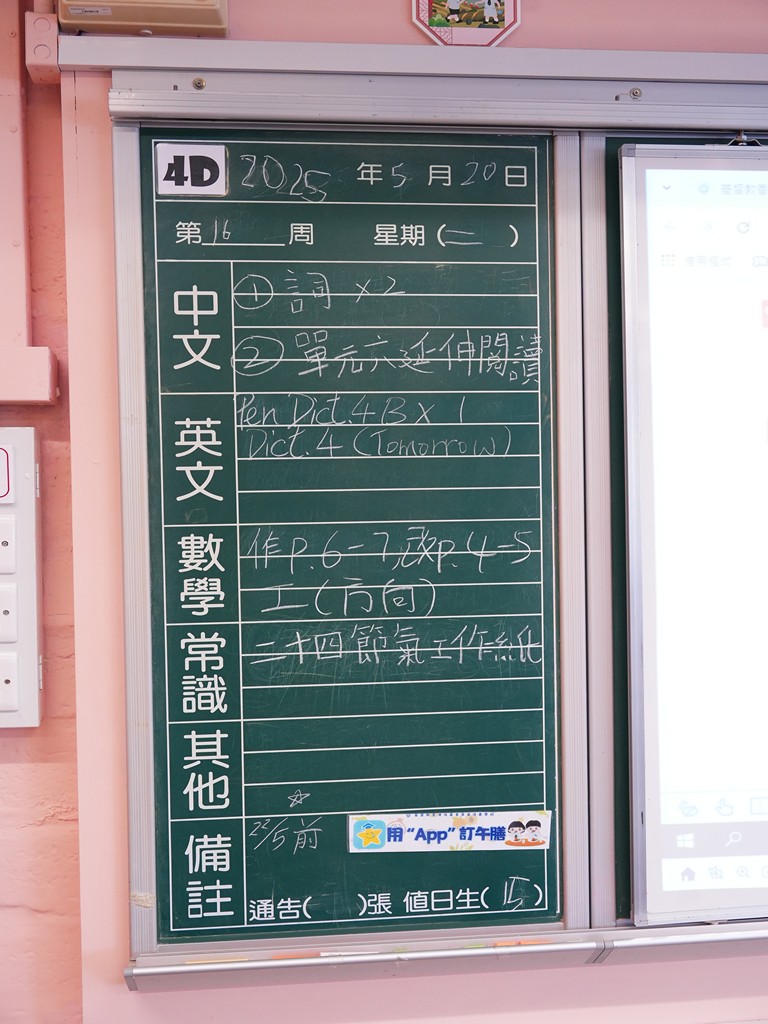 4D 2025 年 5 月 20 日
第 16 周 星期 (二)
中文
① 詞 x 2
② 單元六延伸閱讀
英文
Pen Dict. 4B x 1
Dict. 4 (Tomorrow)
數學
作p.6-7,改p.4-5
工(方向)
常識
二十四節氣工作紙
其他
備註
☆
22/5前
用 “App” 訂午膳
通告( )張 值日生( 15 )